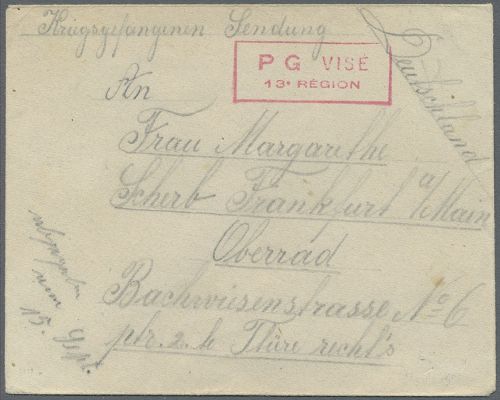 Kriegsgefangenen Sendung
PG VISÉ
13e RÉGION
Deutschland
An
Frau Margarethe
Scherb Frankfurt a/Main
Oberrad
Bachwiesenstrasse No 6
ptr. 2. te Türe recht's
vom
15. Sept.